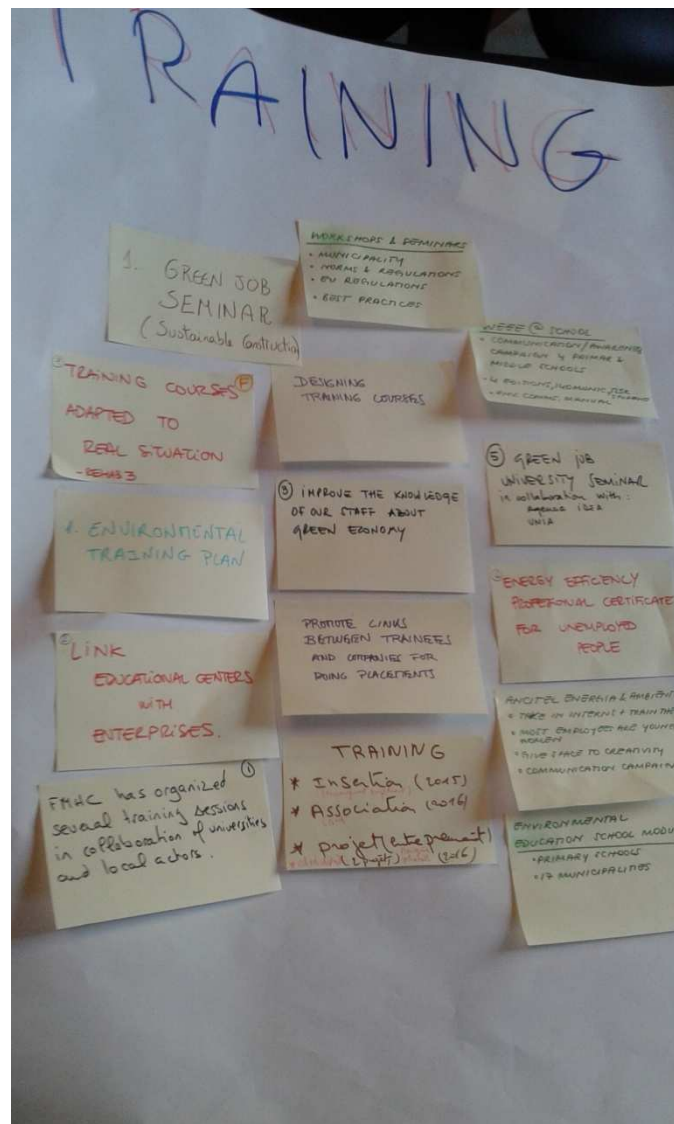 TRAINING
1. GREEN JOB
SEMINAR
(Sustainable Construction
TRAINING COURSES F
ADAPTED TO
REAL SITUATION
- REHAB 3
1. ENVIRONMENTAL
TRAINING PLAN
2 LINK
EDUCATIONAL CENTERS
WITH
ENTERPRISES.
FMHC has organized 1
several training sessions
in collaboration of universities
and local actors.
WORKSHOPS & SEMINARS
• MUNICIPALITY
• NORMS & REGULATIONS
• EU REGULATIONS
• BEST PRACTICES
DESIGNING
TRAINING COURSES
3 IMPROVE THE KNOWLEDGE
OF OUR STAFF ABOUT
GREEN ECONOMY
PROMOTE LINKS
BETWEEN TRAINEES
AND COMPANIES FOR
DOING PLACEMENTS
TRAINING
* Insertion (2015)
* Association (2016)
* projet (entreprenariat)
(2 projets) (2016)
WEEE @ SCHOOL
• COMMUNICATION/AWARENESS
CAMPAIGN 4 PRIMAR &
MIDDLE SCHOOLS
• 4 EDITIONS,
MANUAL
5 GREEN JOB
UNIVERSITY SEMINAR
in collaboration with:
Agenzia IDEA
UNIA
ENERGY EFFICIENCY
PROFESIONAL CERTIFICATE
FOR UNEMPLOYED
PEOPLE
ANCITEL ENERGIA & AMBIENT
• TAKE IN INTERNS + TRAIN THE
• MOST EMPLOYEES ARE YOUNG
WOMEN
• GIVE SPACE TO CREATIVITY
• COMMUNICATION CAMPAIGN
ENVIRONMENTAL
EDUCATION SCHOOL MODU
• PRIMARY SCHOOLS
• 17 MUNICIPALITIES